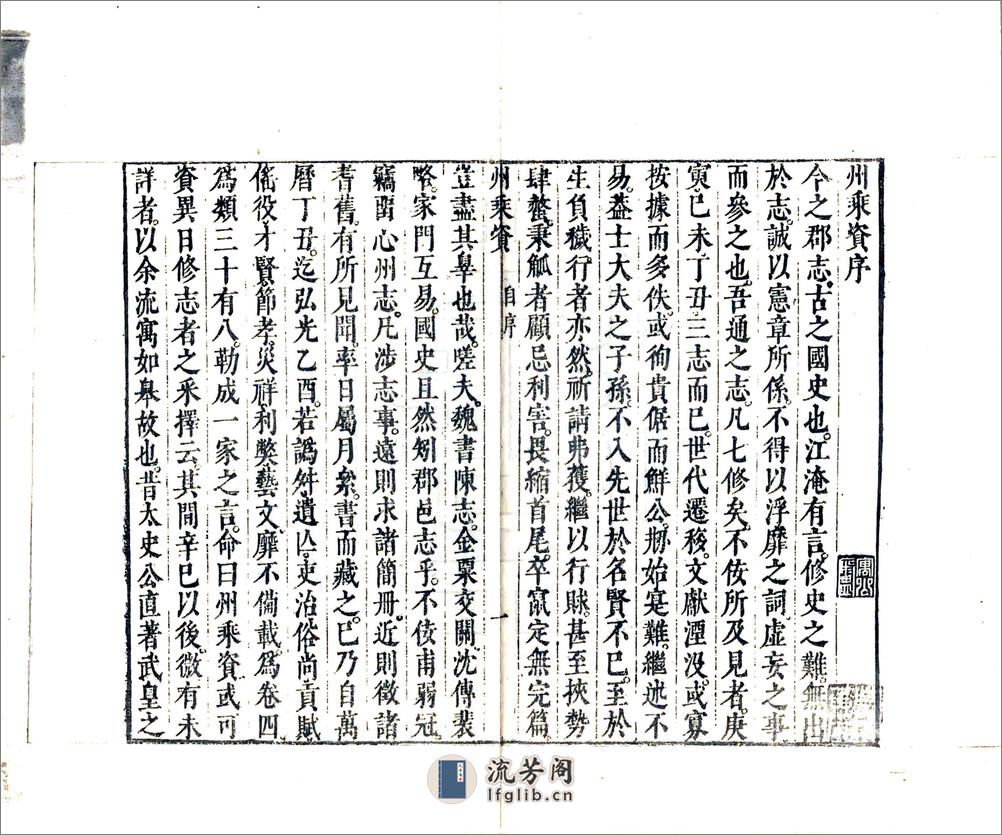 州乘資序
今之郡志古之國史也江淹有言修史之難無出
於志誠以憲章所係不得以浮靡之詞虛妄之事
而參之也吾通之志凡七修矣不佞所及見者庚
寅己未丁丑三志而已世代遷移文獻湮沒或寡
按據而多佚或徇貴倨而鮮公刱始寔難繼述不
易葢士大夫之子孫不入先世於名賢不已至於
生負穢行者亦然祈請弗獲繼以行賕甚至挾勢
肆螫秉觚者顧忌利害畏縮首尾卒竄定無完篇
州乘資 自序 一
豈盡其辠也哉嗟夫魏書陳志金粟交關沈傳裴
略家門互易國史且然矧郡邑志乎不佞甫弱冠
竊畱心州志凡涉志事遠則求諸簡冊近則徵諸
耆舊有所見聞率日屬月絫書而藏之巳乃自萬
曆丁丑迄弘光乙酉若譌舛遺亾吏治俗尚貢賦
徭役才賢節孝災祥利獘藝文靡不備載爲卷四
爲類三十有八勒成一家之言命曰州乘資或可
資異日修志者之釆擇云其間辛巳以後微有未
詳者以余流寓如皋故也昔太史公直著武皇之
流芳阁
lfglib.cn